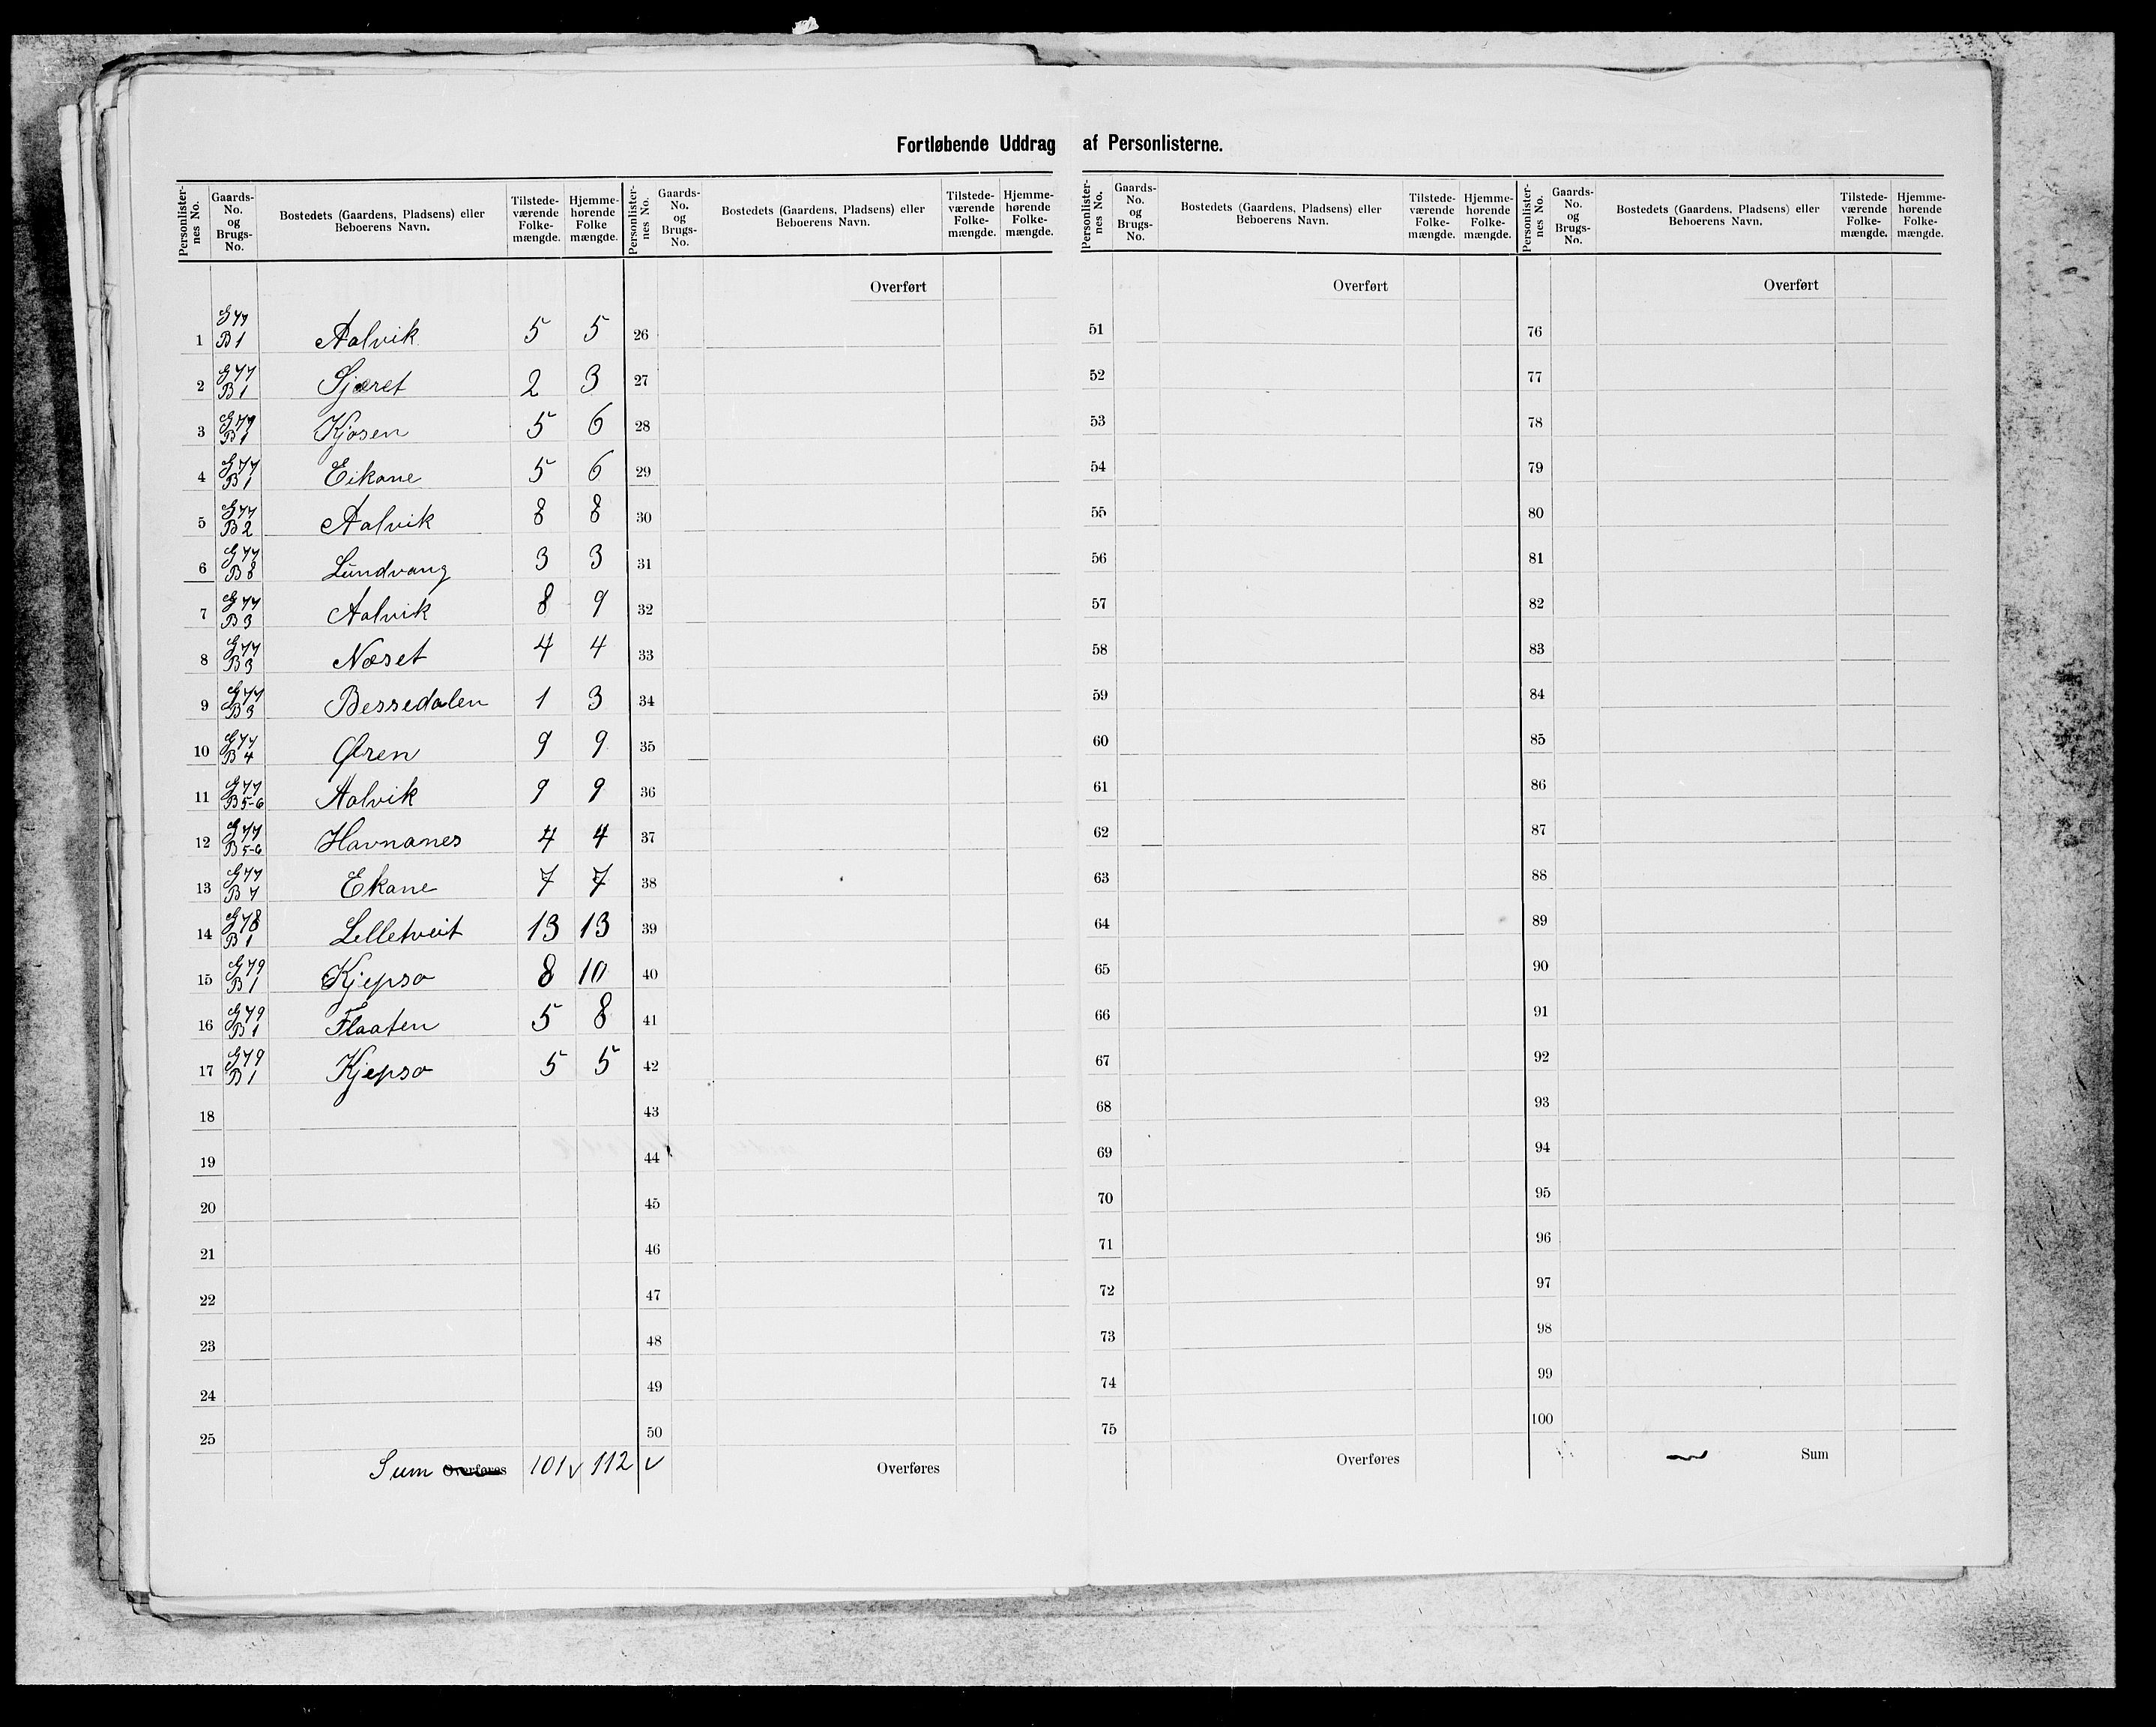 Fortløbende Uddrag af Personlisterne.
Personlisternes No. Gaards-No. og Brugs-No. Bostedets (Gaardens, Pladsens) eller Beboerens Navn. Tilstedeværende Folkemængde. Hjemmehørende Folke mængde.
1 G 77 B 1 Aalvik 5 5
2 G 77 B 1 Sjæret 2 3
3 G 79 B 1 Kjosen 5 6
4 G 77 B 1 Eikane 5 6
5 G 77 B 2 Aalvik 8 8
6 G 77 B 8 Lundvang 3 3
7 G 77 B 3 Aalvik 8 9
8 G 77 B 3 Næset 4 4
9 G 77 B 3 Bessedalen 1 3
10 G 77 B 4 Øren 9 9
11 G 77 B 5-6 Aalvik 9 9
12 G 77 B 5-6 Havnanes 4 4
13 G 77 B 7 Ekane 7 7
14 G 78 B 1 Lilletveit 13 13
15 G 79 B 1 Kjepso 8 10
16 G 79 B 1 Flaaten 5 8
17 G 79 B 1 Kjepso 5 5
18
19
20
21
22
23
24
25
Sum Overføres 101 v 112 v
Personlisternes No. Gaards-No. og Brugs-No. Bostedets (Gaardens, Pladsens) eller Beboerens Navn. Tilstedeværende Folkemængde. Hjemmehørende Folkemængde.
Overført
26
27
28
29
30
31
32
33
34
35
36
37
38
39
40
41
42
43
44
45
46
47
48
49
50
Overføres
Personlisternes No. Gaards-No. og Brugs-No. Bostedets (Gaardens, Pladsens) eller Beboerens Navn. Tilstedeværende Folkemængde. Hjemmehørende Folkemængde.
Overført
51
52
53
54
55
56
57
58
59
60
61
62
63
64
65
66
67
68
69
70
71
72
73
74
75
Overføres
Personlisternes No. Gaards-No. og Brugs-No. Bostedets (Gaardens, Pladsens) eller Beboerens Navn. Tilstedeværende Folkemængde. Hjemmehørende Folkemængde.
Overført
76
77
78
79
80
81
82
83
84
85
86
87
88
89
90
91
92
93
94
95
96
97
98
99
100
Sum